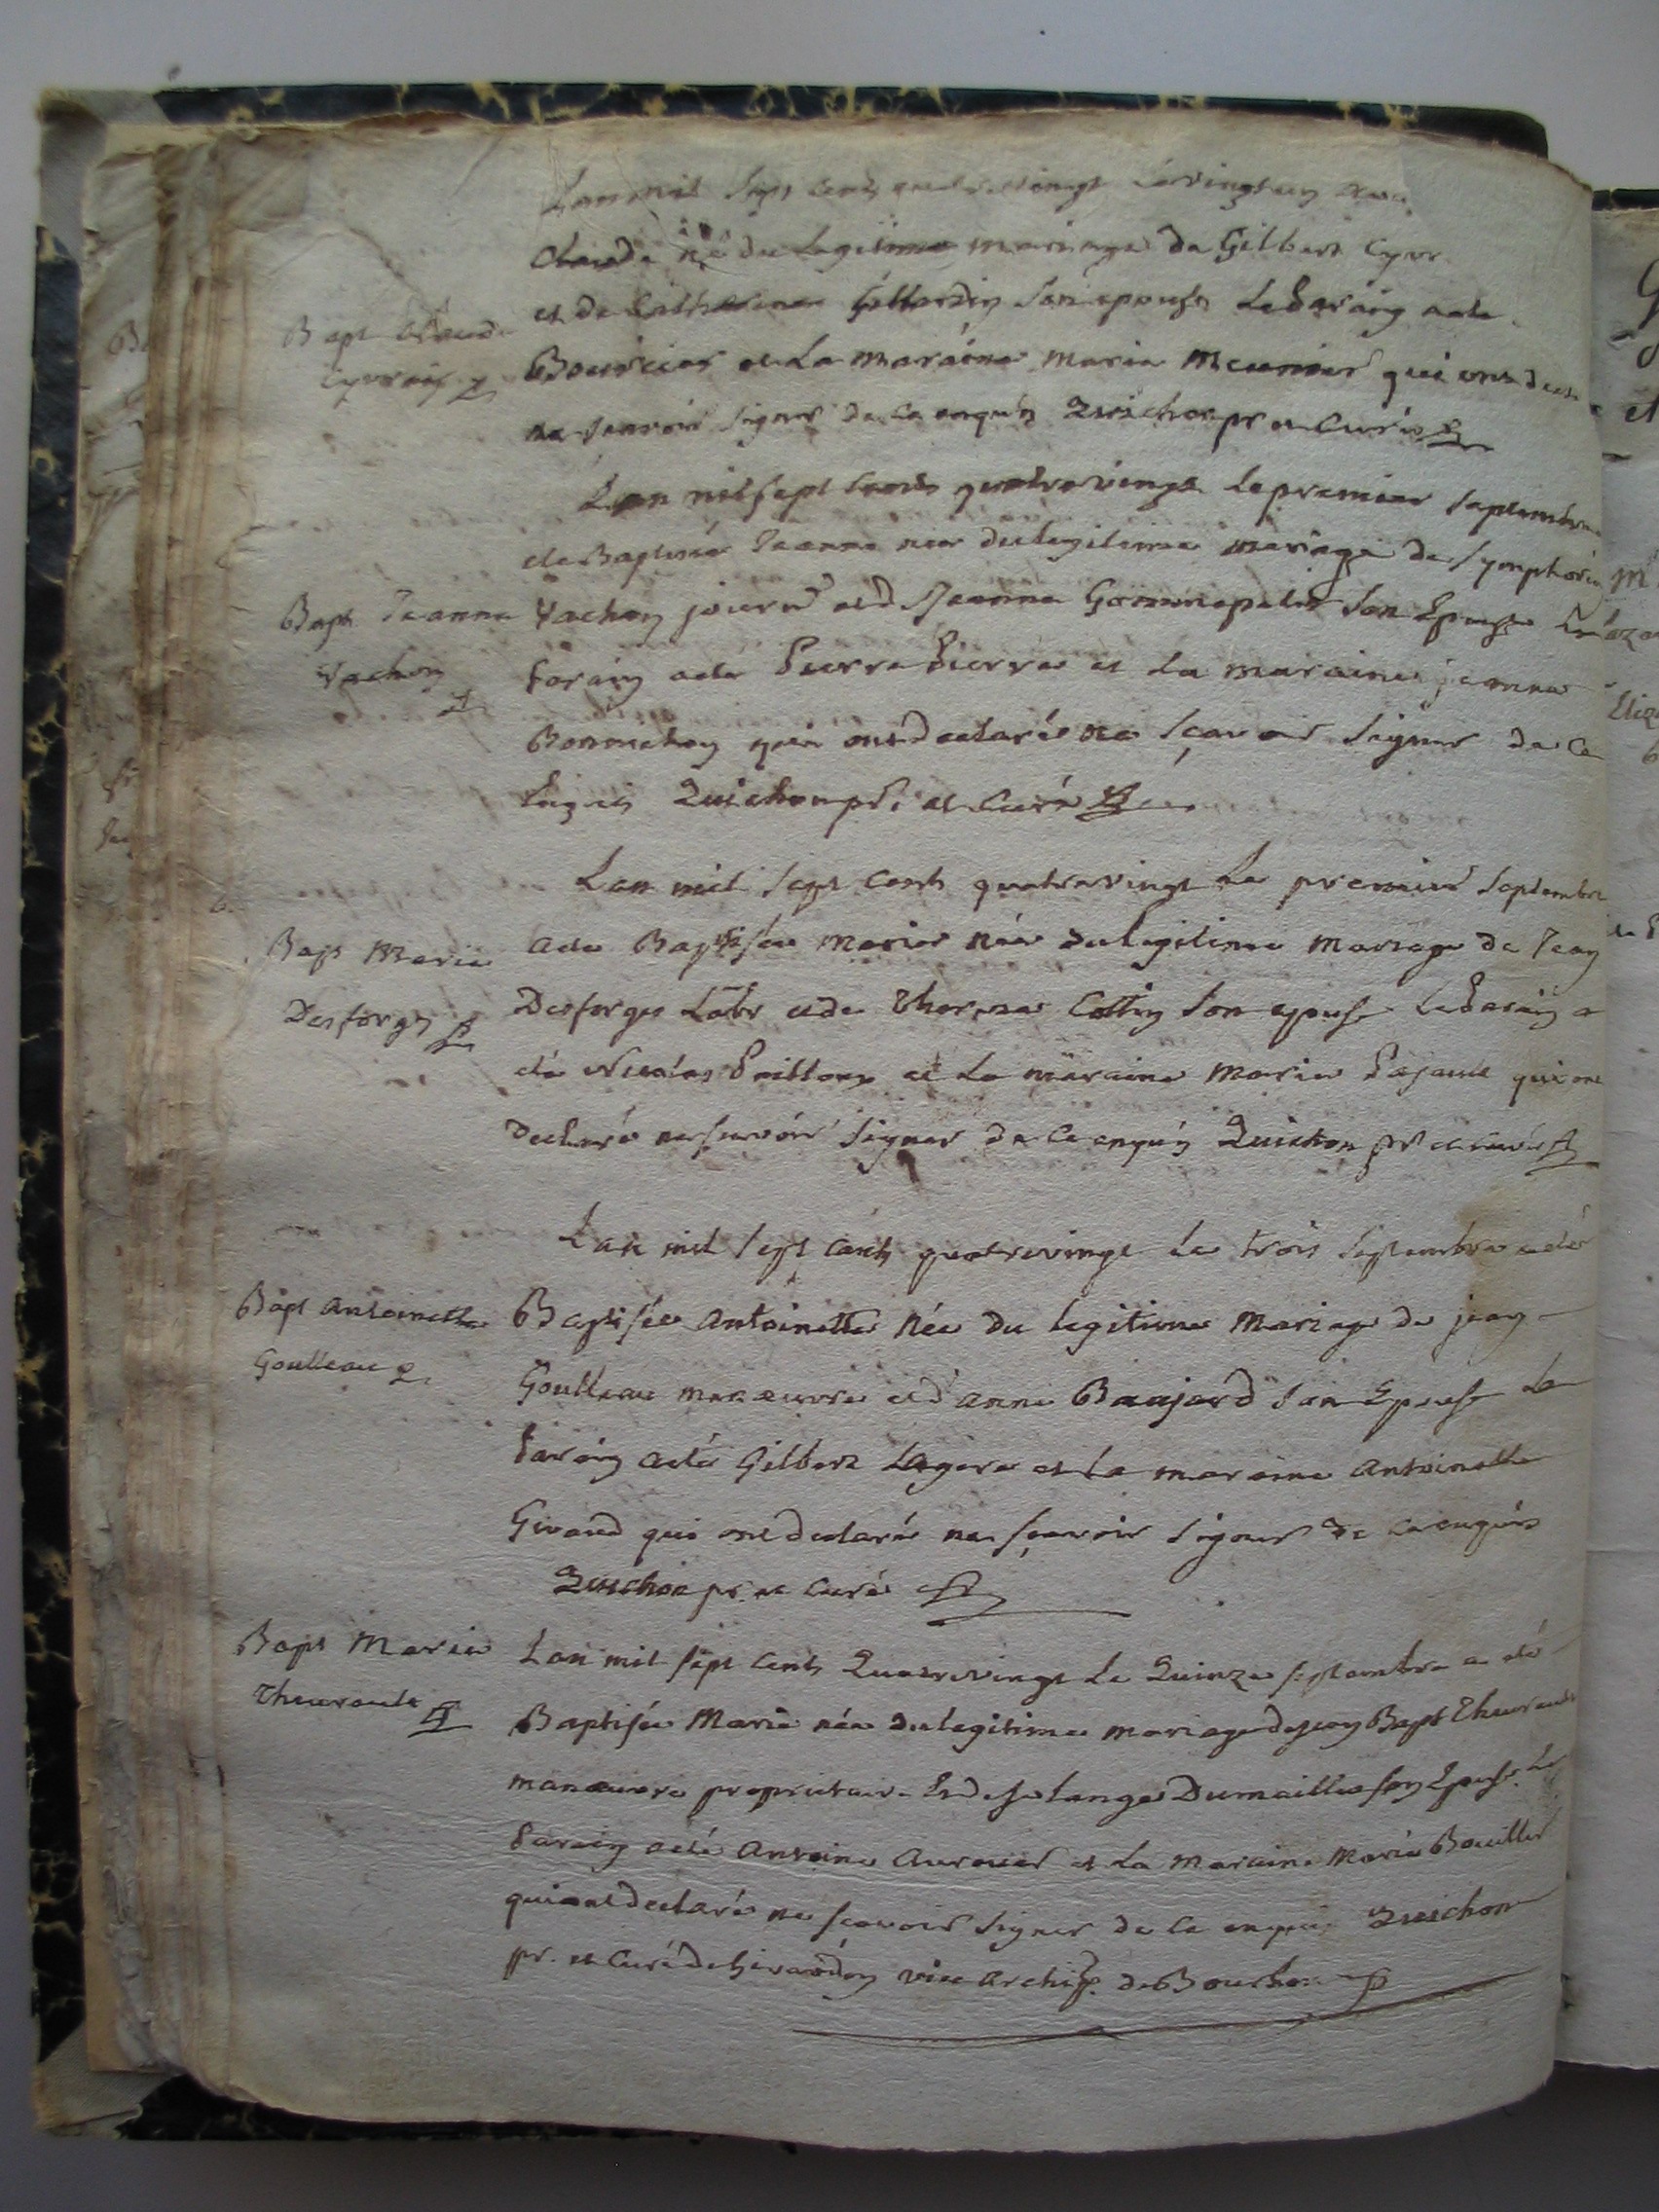 Lan mil sept cents quatrevingt le vingt un
Claude né du legitime mariage de Gilbert Cyvr
et de Catherine Gillardin son epouse le Parain a ete
Bapt Claude
Cyvrais
Bourcier et la maraine Marie Meunier qui ont
ne scavoir signer de ce enquis Quichon pr et curé
Lan mil sept cents quatrevingt le premier septembre
ete Baptisée Jeanne née du legitime mariage de Symphorien
Bapt Jeanne
Vachon
Vachon journ et d Jeanne son Epouse Le
Parain a ete Pierre Pierre et la maraine jeanne
Bonmichon qui ont declaré ne sçavoir signer de ce
Enquis Quichon pr. et curé
Lan mil sept cents quatrevingt le premier septembre
Bapt Marie
Desforges
a ete Baptisée Marie née du legitime mariage de Jean
Desforges Labr et de Therese Cottin son epouse le Parain a
été Nicolas et la maraine Marie Pajault qui ont
declaré ne scavoir signer de ce enquis Quichon pr et curé
Lan mil sept cents quatrevingt le trois septembre a eté
Bapt Antoinette
Goulleau
Baptisée Antoinette née du legitime mariage de jean
Goulleau manœuvre et d'anne Baujard son Epouse Le
Parain a eté Gilbert Lagere et la maraine Antoinette
Giraud qui ont declaré ne scavoir signer de ce enquis
Quichon pr. et curé
Bapt Marie
Theurault
Lan mil sept cents Quatrevingt le Quinze septembre a eté
Baptisée Marie née du legitime mariage de jean Bapt Theurault
manœuvre proprietaire Et de solange Dumaille son Epouse Le
Parain a eté Antoine Auroued et la maraine Marie Bouiller
qui ont declaré ne scavoir signer de ce enquis Quichon
pr. et curé de vice archip. de Bourbon